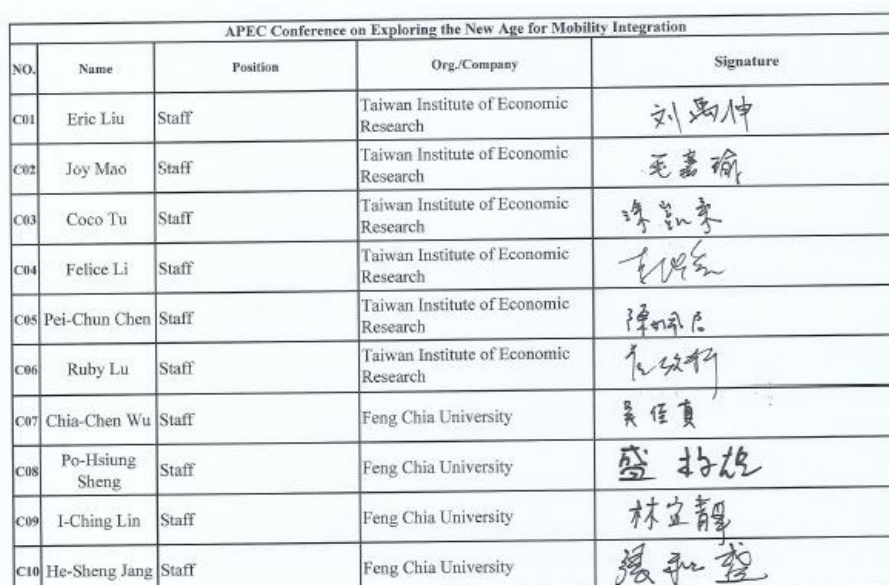 APEC Conference on Exploring the New Age for Mobility Integration
NO. Name Position Org./Company Signature
C01 Eric Liu Staff Taiwan Institute of Economic Research 刘禹伸
C02 Joy Mao Staff Taiwan Institute of Economic Research 毛嘉瑜
C03 Coco Tu Staff Taiwan Institute of Economic Research 涂凱
C04 Felice Li Staff Taiwan Institute of Economic Research
C05 Pei-Chun Chen Staff Taiwan Institute of Economic Research 陳
C06 Ruby Lu Staff Taiwan Institute of Economic Research
C07 Chia-Chen Wu Staff Feng Chia University 吳佳真
C08 Po-Hsiung Sheng Staff Feng Chia University 盛
C09 I-Ching Lin Staff Feng Chia University 林宜靜
C10 He-Sheng Jang Staff Feng Chia University 張和盛